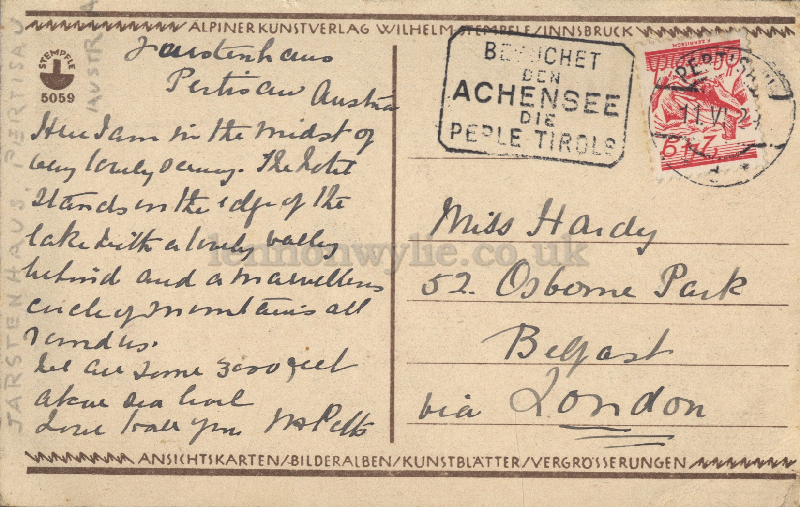 ALPINER KUNSTVERLAG WILHELM STEMPFLE/INNSBRUCK
STEMPFLE
5059
Pertisau Austria
Here I am in the midst of
very lovely scenery. The hotel
stands on the edge of the
lake with a lovely valley
behind and a marvellous
circle of mountains all
round us.
We are some 3000 feet
above sea level
Love to all
JARSTENHAUS. PERTSAU
AUSTRIA
BESUCHET
DEN
ACHENSEE
DIE
PERLE TIROLS
PERTISAU
Miss Hardy
52. Osborne Park
Belfast
via London
lennonwylie.co.uk
ANSICHTSKARTEN/BILDERALBEN/KUNSTBLÄTTER/VERGRÖSSERUNGEN